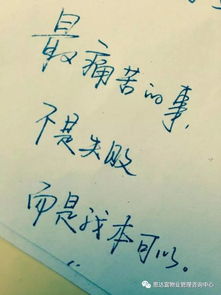 最痛苦的事,
不是失败
而是我本可以。
恩达富物业管理咨询中心